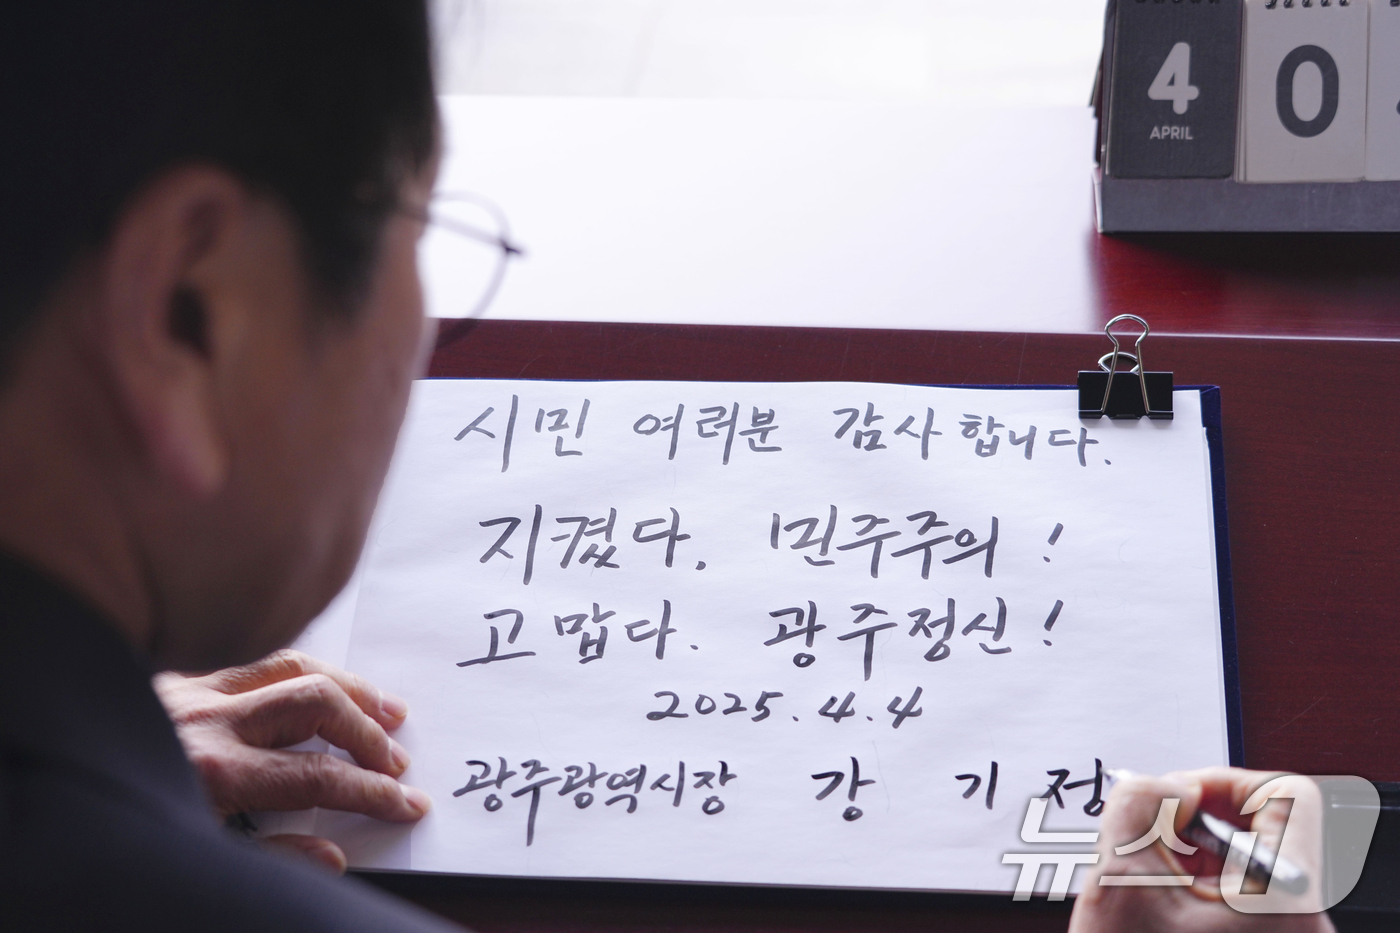 4 0
APRIL
시민 여러분 감사합니다.
지켰다. 민주주의!
고맙다. 광주정신!
2025.4.4
광주광역시장 강 기 정
뉴스1